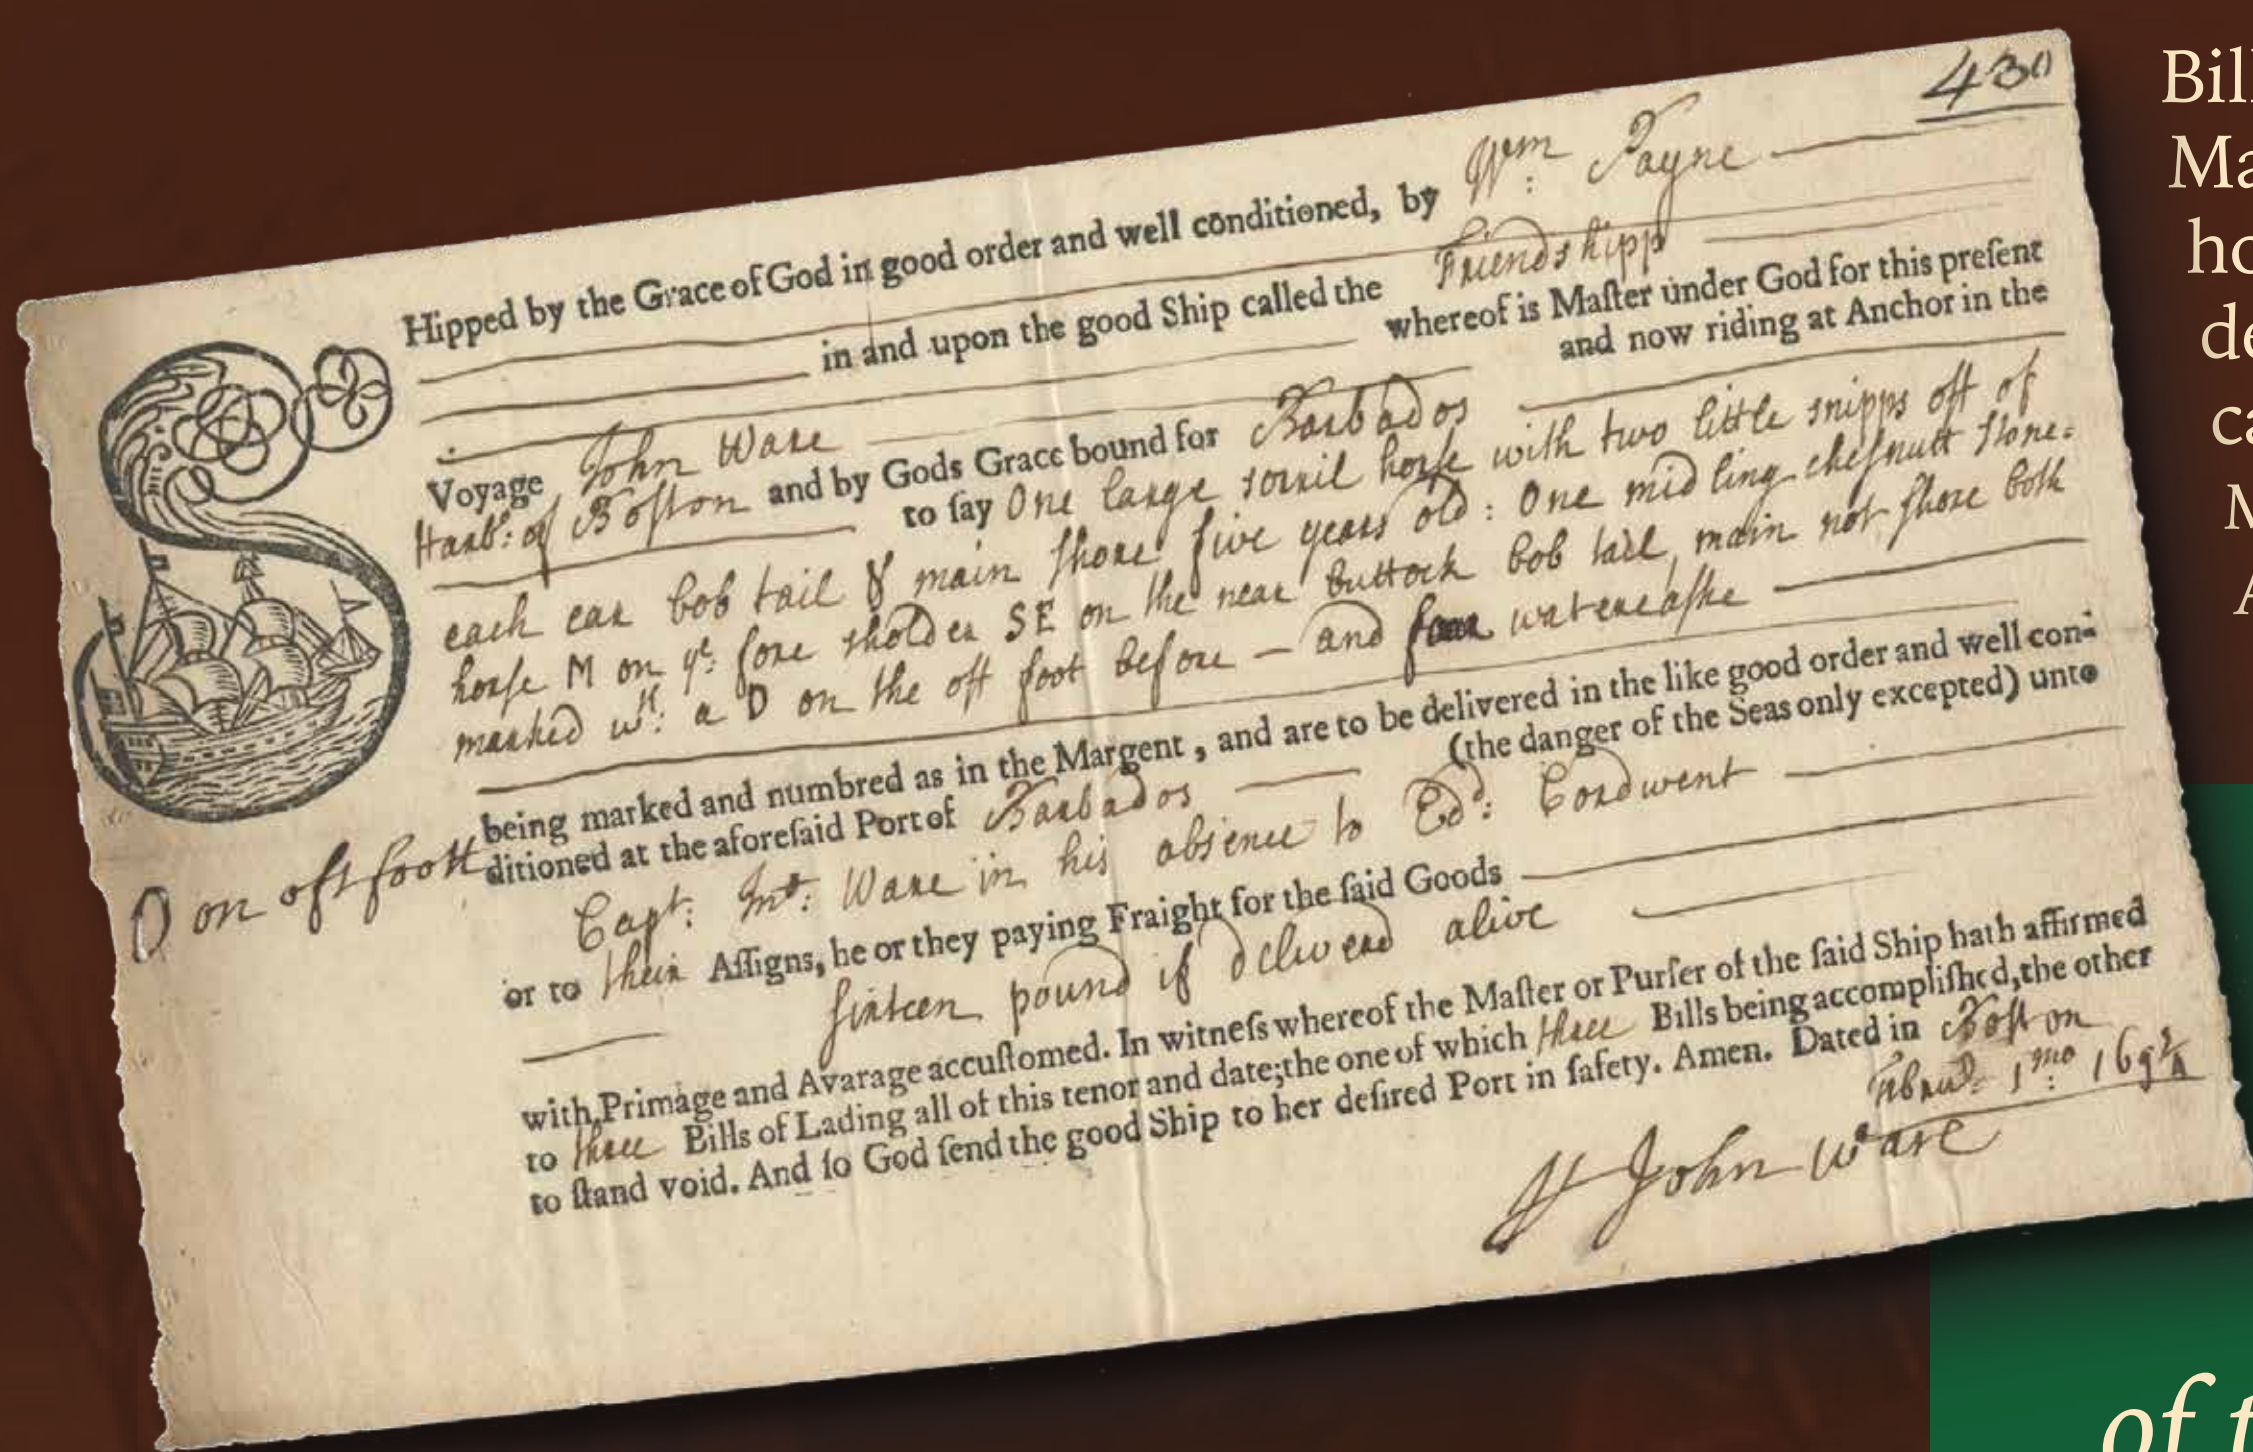 430
SHipped by the Grace of God in good order and well conditioned, by Wm: Payne
in and upon the good Ship called the Friendshipp
whereof is Maſter under God for this preſent
Voyage John Ware and now riding at Anchor in the
Harbr: of Boſton and by Gods Grace bound for Barbados
to ſay One large sorril horſe with two little snipps off of
each ear bob tail & main ſhore five years old: One midling cheſnutt stone=
horſe M on ye: fore sholder SE on the near buttock bob tail, main not ſhore both
marked wth: a D on the off foot before – and watercaſke
being marked and numbred as in the Margent, and are to be delivered in the like good order and well con-
ditioned at the aforeſaid Port of Barbados (the danger of the Seas only excepted) unto
D on off foott
Capt: Jno: Ware in his absence to Edd: Cordwent
or to their Aſſigns, he or they paying Fraight for the ſaid Goods
ſixteen pound if deliverd alive
with Primage and Avarage accuſtomed. In witneſs whereof the Maſter or Purſer of the ſaid Ship hath affirmed
to three Bills of Lading all of this tenor and date; the one of which three Bills being accompliſhed, the other
to ſtand void. And ſo God ſend the good Ship to her deſired Port in ſafety. Amen. Dated in Boſton
1mo:
John Ware
Bill
Ma
ho
de
ca
M
A
of t